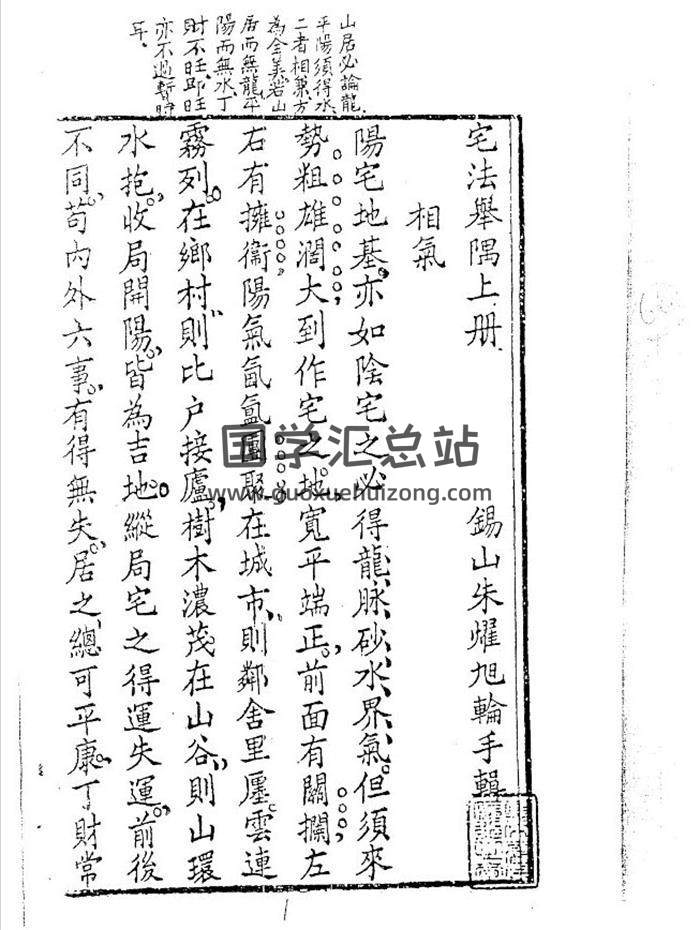 山居必論龍
平陽須得水
二者相兼方
為全美若山
居而無龍平
陽而無水丁
財不旺即旺
亦不過暫時
耳
宅法舉隅上冊 錫山朱燿旭輪手輯
相氣
陽宅地基亦如陰宅之必得龍脉砂水界氣但須來
勢粗雄濶大到作宅之地寬平端正前面有關攔左
右有擁衞陽氣氤氳團聚在城市則鄰舍里廛雲連
霧列在鄉村則比户接廬樹木濃茂在山谷則山環
水抱收局開陽皆為吉地縱局宅之得運失運前後
不同苟內外六事有得無失居之總可平康丁財常
国学汇总站
www.guoxuehuizong.com
1